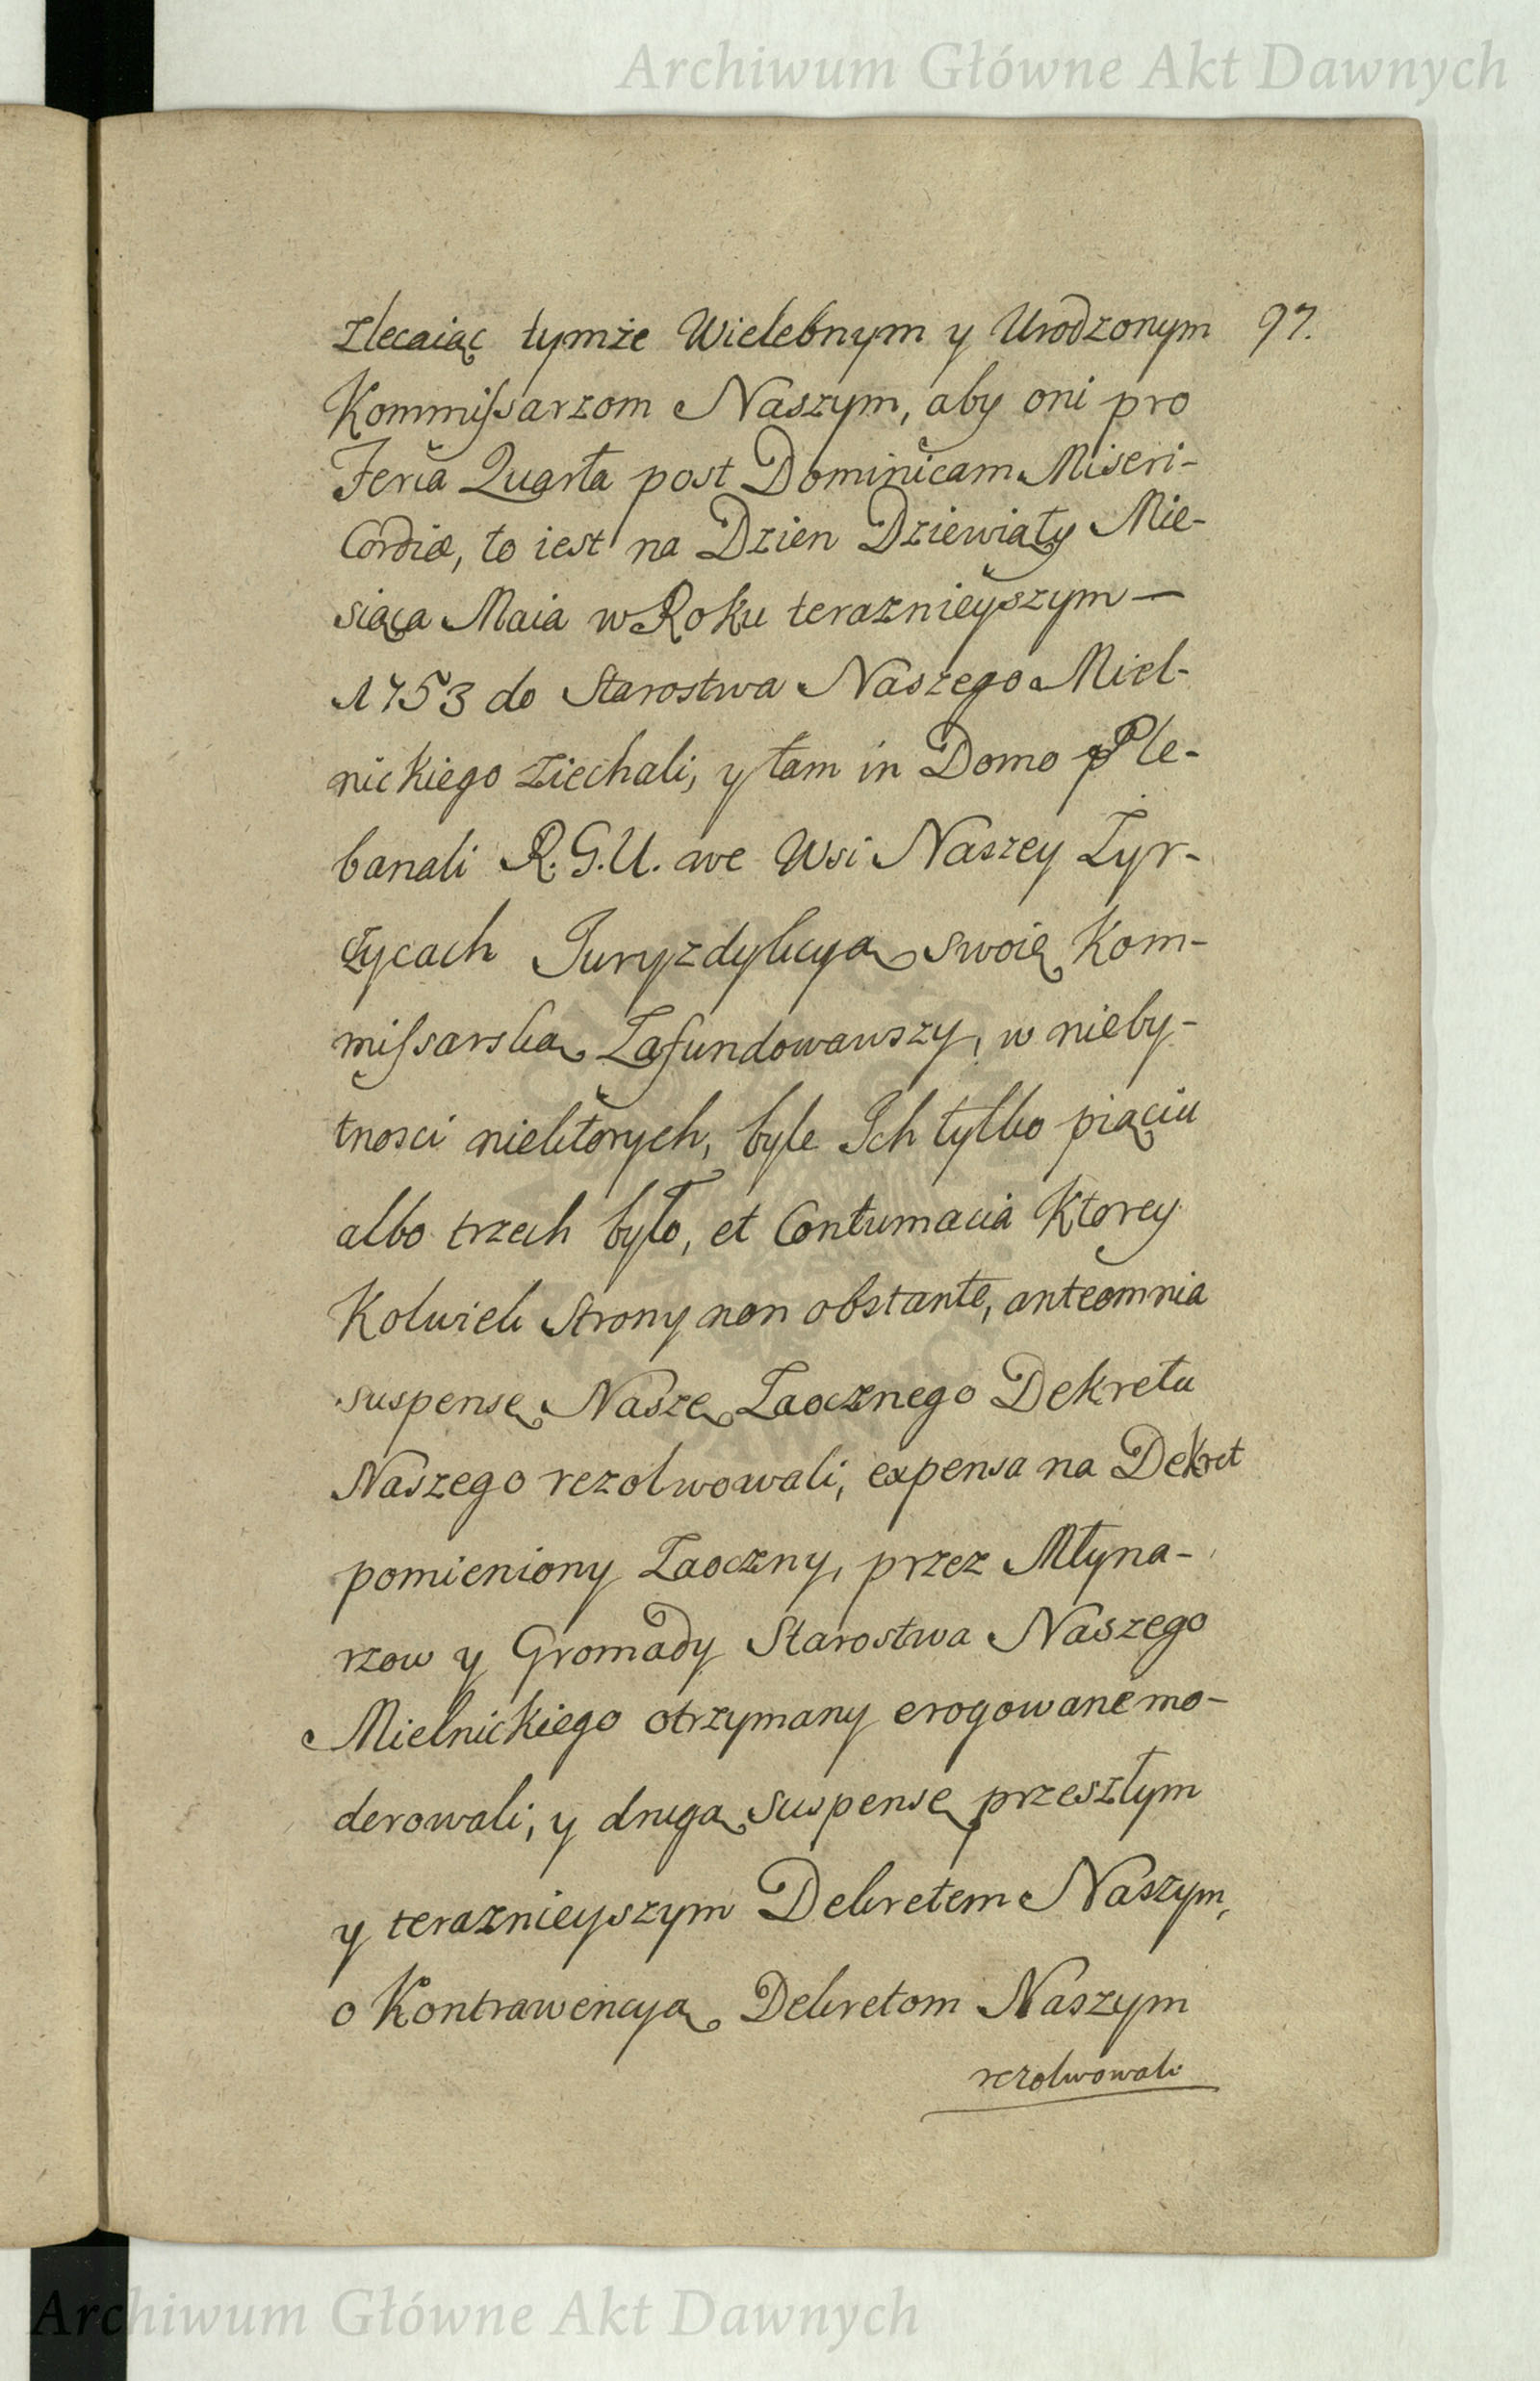 Archiwum Główne Akt Dawnych
zlecaiąc tymże Wielebnym y Urodzonym 97.
Kommissarzom Naszym, aby oni pro
Feria Quarta post Dominicam Miseri-
Cordiæ, to iest na Dzien Dziewiąty Mie-
siąca Maia w Roku teraznieyszym —
1753 do Starostwa Naszego Miel-
nickiego ziechali, y tam in Domo Ple-
banali R.G.U. we Wsi Naszey Żyr-
czycach Juryzdykcyą swoię Kom-
missarską Zafundowawszy, w nieby-
tnosci niektorych, byle Ich tylko piąciu
albo trzech było, et Contumacia Ktorey
Kolwiek Strony non obstante, ante omnia
suspensę Naszę Zaocznego Dekretu
Naszego rezolwowali, expensa na Dekret
pomieniony Zaoczny, przez Młyna-
rzow y Gromady Starostwa Naszego
Mielnickiego otrzymany erogowane mo-
derowali, y drugą suspensę przeszłym
y teraznieyszym Dekretem Naszym,
o Kontrawencyą Dekretom Naszym
rezolwowali
Archiwum Główne Akt Dawnych